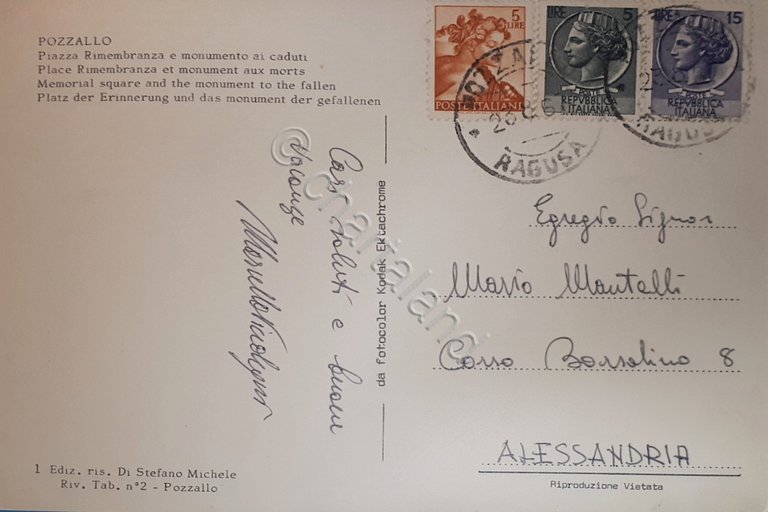 POZZALLO
Piazza Rimembranza e monumento ai caduti
Place Rimembranza et monument aux morts
Memorial square and the monument to the fallen
Platz der Erinnerung und das monument der gefallenen
5
LIRE
POSTE ITALIANE
LIRE 5
POSTE
REPVBBLICA
ITALIANA
LIRE 15
POSTE
REPVBBLICA
ITALIANA
RAGUSA
RAGUSA
Cari saluti e buone
vacanze
da fotocolor Kodak Ektachrome
Egregio Signor
Mario Mantelli
Corso Borsalino 8
ALESSANDRIA
Riproduzione Vietata
1 Ediz. ris. Di Stefano Michele
Riv. Tab. n°2 - Pozzallo
© chartaland